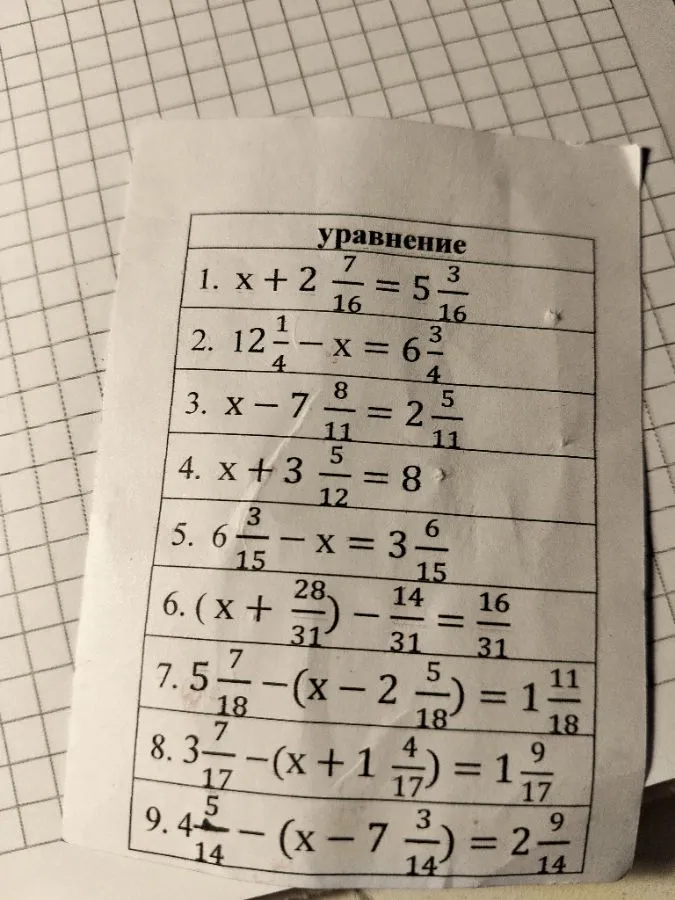 уравнение
1. x + 2 7/16 = 5 3/16
2. 12 1/4 − x = 6 3/4
3. x − 7 8/11 = 2 5/11
4. x + 3 5/12 = 8
5. 6 3/15 − x = 3 6/15
6. ( x + 28/31) − 14/31 = 16/31
7. 5 7/18 −(x − 2 5/18) = 1 11/18
8. 3 7/17 −(x + 1 4/17) = 1 9/17
9. 4 5/14 − (x − 7 3/14) = 2 9/14